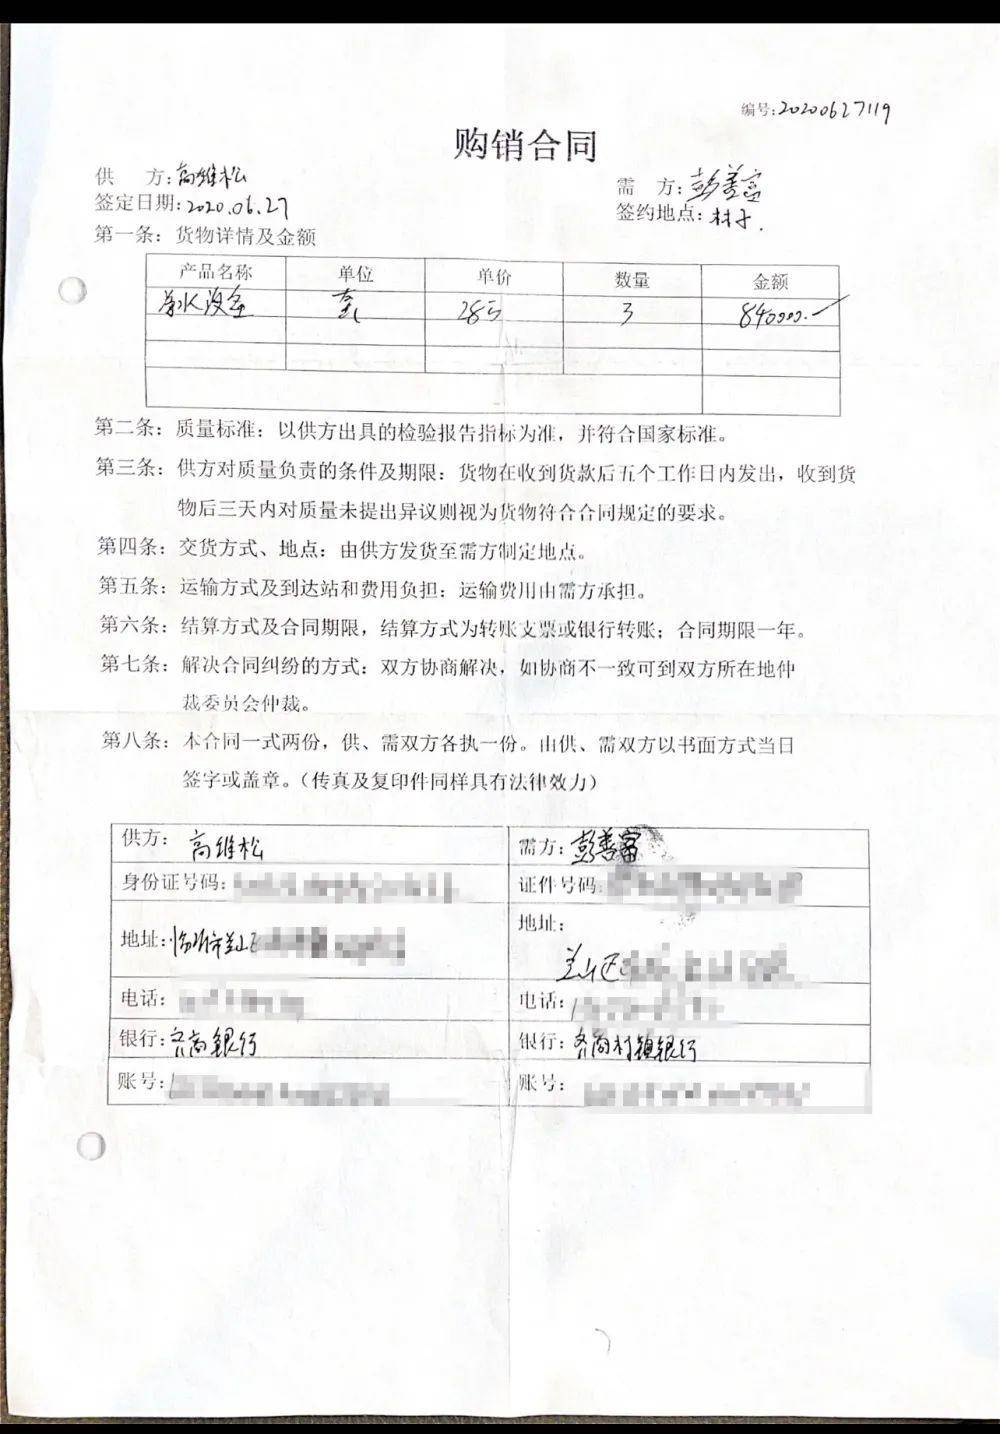 编号:20200627119
购销合同
供　方:高维松
需　方:彭善富
签定日期:2020.06.27
签约地点:村子.
第一条：货物详情及金额
产品名称 单位 单价 数量 金额
净水设备 套 28万 3 840000.-
第二条：质量标准：以供方出具的检验报告指标为准，并符合国家标准。
第三条：供方对质量负责的条件及期限：货物在收到货款后五个工作日内发出，收到货
物后三天内对质量未提出异议则视为货物符合合同规定的要求。
第四条：交货方式、地点：由供方发货至需方制定地点。
第五条：运输方式及到达站和费用负担：运输费用由需方承担。
第六条：结算方式及合同期限，结算方式为转账支票或银行转账；合同期限一年。
第七条：解决合同纠纷的方式：双方协商解决，如协商不一致可到双方所在地仲
裁委员会仲裁。
第八条：本合同一式两份，供、需双方各执一份。由供、需双方以书面方式当日
签字或盖章。（传真及复印件同样具有法律效力）
供方：高维松
需方：彭善富
身份证号码:
证件号码:
地址:临沂市兰山区
地址：
兰山区
电话:
电话:
银行:齐商银行
银行:齐商村镇银行
账号:
账号: